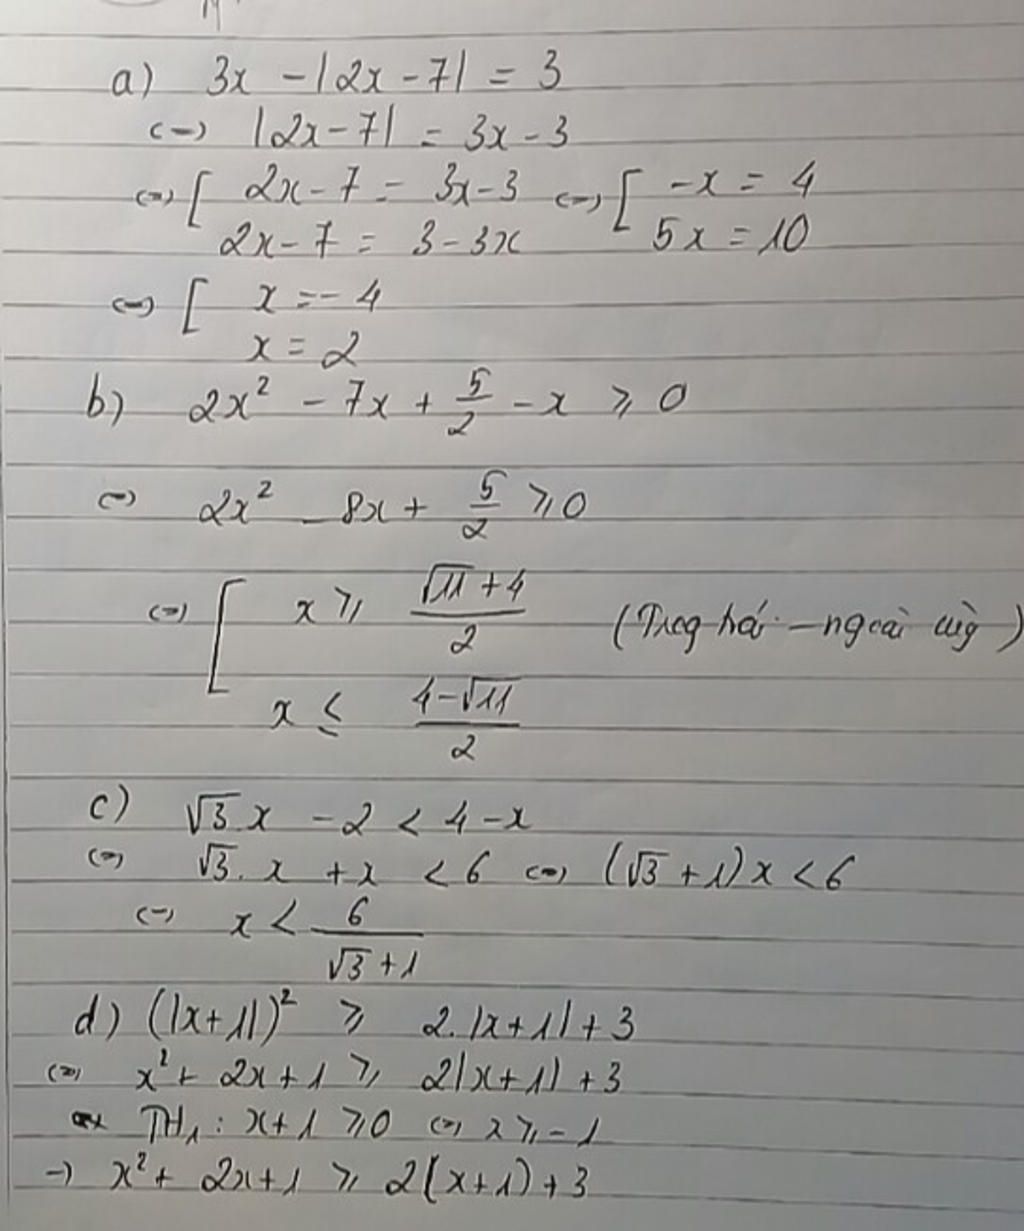 a) 3x - |2x - 7| = 3
(=) |2x - 7| = 3x - 3
(=) [ 2x - 7 = 3x - 3 (=) [ -x = 4
2x - 7 = 3 - 3x 5x = 10
(=) [ x = - 4
x = 2
b) 2x² - 7x + 5/2 - x ⩾ 0
(=) 2x² - 8x + 5/2 ⩾ 0
(=) [ x ⩾ (√11 + 4)/2 (Trog trái - ngoài cùg)
x ≤ (4 - √11)/2
c) √3.x - 2 < 4 - x
(=) √3. x + x < 6 (=) (√3 + 1)x < 6
(=) x < 6/(√3 + 1)
d) (|x + 1|)² ⩾ 2.|x + 1| + 3
(=) x² + 2x + 1 ⩾ 2|x + 1| + 3
TH₁ : x + 1 ⩾ 0 (=) x ⩾ - 1
-) x² + 2x + 1 ⩾ 2(x + 1) + 3